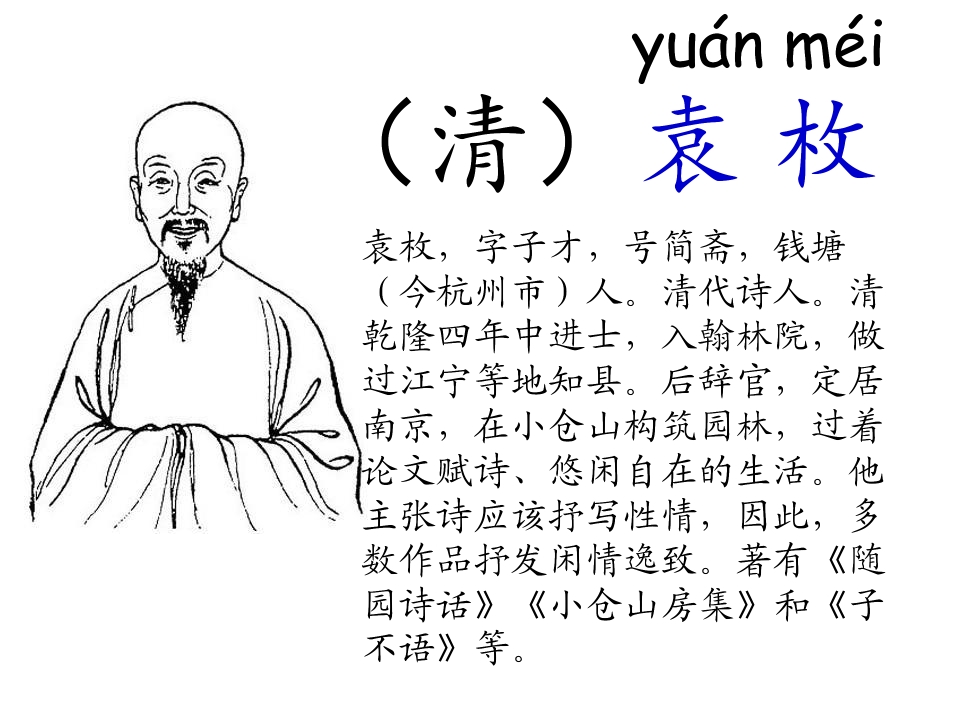 yuán méi
（清）袁 枚
袁枚，字子才，号简斋，钱塘
（今杭州市）人。清代诗人。清
乾隆四年中进士，入翰林院，做
过江宁等地知县。后辞官，定居
南京，在小仓山构筑园林，过着
论文赋诗、悠闲自在的生活。他
主张诗应该抒写性情，因此，多
数作品抒发闲情逸致。著有《随
园诗话》《小仓山房集》和《子
不语》等。